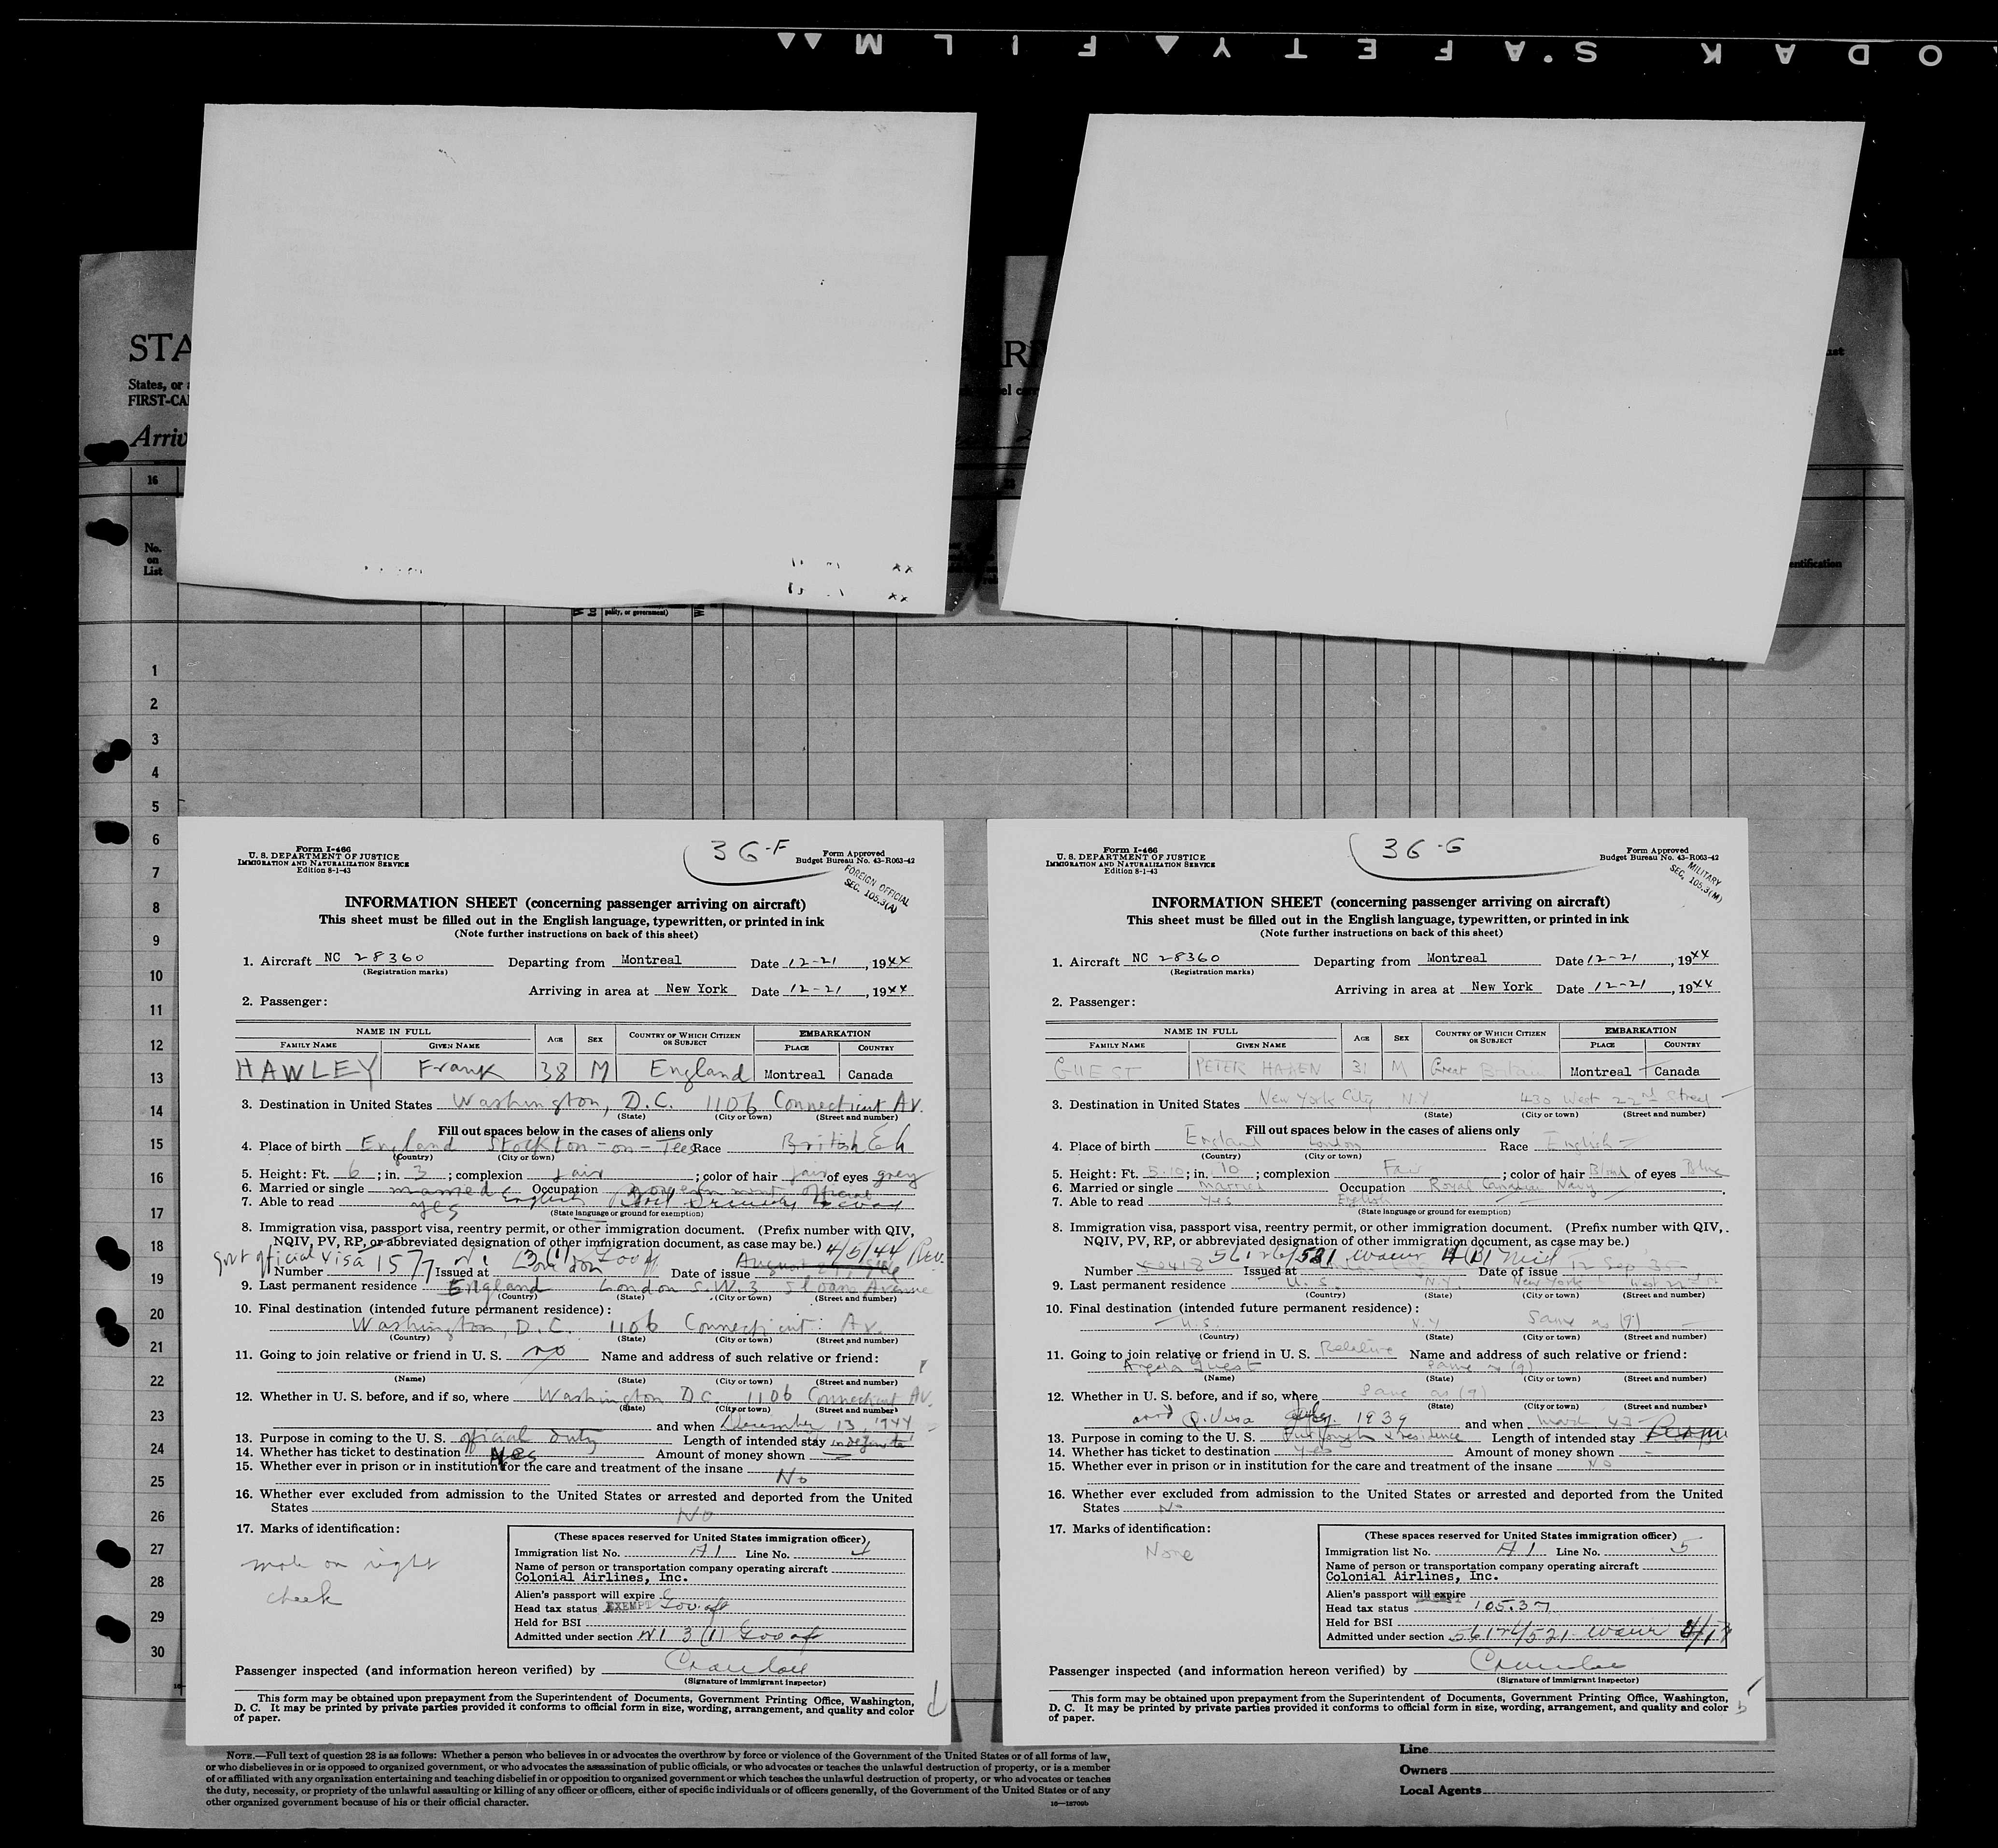 KODAK S'AFETY FILM
STA
States, or
FIRST-CA
Arriv
16
No.
on
List
polity, or government)
entification
1
2
3
4
5
6
7
8
9
10
11
12
13
14
15
16
17
18
19
20
21
22
23
24
25
26
27
28
29
30
Form I-466
U. S. DEPARTMENT OF JUSTICE
IMMIGRATION AND NATURALIZATION SERVICE
Edition 8-1-43
36-F
Form Approved
Budget Bureau No. 43-R063-42
FOREIGN OFFICIAL
SEC. 105.3(A)
INFORMATION SHEET (concerning passenger arriving on aircraft)
This sheet must be filled out in the English language, typewritten, or printed in ink
(Note further instructions on back of this sheet)
1. Aircraft NC 28360 Departing from Montreal Date 12-21, 1944
(Registration marks)
Arriving in area at New York Date 12-21, 1944
2. Passenger:
NAME IN FULL AGE SEX COUNTRY OF WHICH CITIZEN OR SUBJECT EMBARKATION
FAMILY NAME GIVEN NAME PLACE COUNTRY
HAWLEY Frank 38 M England Montreal Canada
3. Destination in United States Washington, D.C. 1106 Connecticut Av.
(State) (City or town) (Street and number)
Fill out spaces below in the cases of aliens only
4. Place of birth England Stockton-on-Tees Race British
(Country) (City or town)
5. Height: Ft. 6; in. 3; complexion fair; color of hair fair of eyes grey
6. Married or single married Occupation government official
7. Able to read yes English
(State language or ground for exemption)
8. Immigration visa, passport visa, reentry permit, or other immigration document. (Prefix number with QIV,
NQIV, PV, RP, or abbreviated designation of other immigration document, as case may be.) 4/5/44 Rev.
Govt official visa 3(1) Gov off
Number 1577 Issued at London Date of issue August
9. Last permanent residence England London S.W.3 Sloan Avenue
(Country) (State) (City or town) (Street and number)
10. Final destination (intended future permanent residence):
Washington, D.C. 1106 Connecticut Av.
(Country) (State) (City or town) (Street and number)
11. Going to join relative or friend in U. S. no Name and address of such relative or friend:
(Name) (State) (City or town) (Street and number)
12. Whether in U. S. before, and if so, where Washington D.C. 1106 Connecticut Av.
(State) (City or town) (Street and number)
and when December 13 1944
13. Purpose in coming to the U. S. official duty Length of intended stay indefinite
14. Whether has ticket to destination yes Amount of money shown —
15. Whether ever in prison or in institution for the care and treatment of the insane No
16. Whether ever excluded from admission to the United States or arrested and deported from the United
States No
17. Marks of identification:
mole on right
cheek
(These spaces reserved for United States immigration officer)
Immigration list No. A1 Line No. 4
Name of person or transportation company operating aircraft
Colonial Airlines, Inc.
Alien's passport will expire
Head tax status EXEMPT Gov. off
Held for BSI
Admitted under section NI 3(1) Gov of
Passenger inspected (and information hereon verified) by
(Signature of immigrant inspector)
This form may be obtained upon prepayment from the Superintendent of Documents, Government Printing Office, Washington,
D. C. It may be printed by private parties provided it conforms to official form in size, wording, arrangement, and quality and color
of paper.
Form I-466
U. S. DEPARTMENT OF JUSTICE
IMMIGRATION AND NATURALIZATION SERVICE
Edition 8-1-43
36-G
Form Approved
Budget Bureau No. 43-R063-42
MILITARY
SEC. 105.3(M)
INFORMATION SHEET (concerning passenger arriving on aircraft)
This sheet must be filled out in the English language, typewritten, or printed in ink
(Note further instructions on back of this sheet)
1. Aircraft NC 28360 Departing from Montreal Date 12-21, 1944
(Registration marks)
Arriving in area at New York Date 12-21, 1944
2. Passenger:
NAME IN FULL AGE SEX COUNTRY OF WHICH CITIZEN OR SUBJECT EMBARKATION
FAMILY NAME GIVEN NAME PLACE COUNTRY
GUEST PETER HADEN 31 M Great Britain Montreal Canada
3. Destination in United States New York City N.Y. 430 West 22nd Street
(State) (City or town) (Street and number)
Fill out spaces below in the cases of aliens only
4. Place of birth England London Race English
(Country) (City or town)
5. Height: Ft. 5-10; in. 10; complexion Fair; color of hair Blond of eyes Blue
6. Married or single Married Occupation Royal Canadian Navy
7. Able to read Yes English
(State language or ground for exemption)
8. Immigration visa, passport visa, reentry permit, or other immigration document. (Prefix number with QIV,
NQIV, PV, RP, or abbreviated designation of other immigration document, as case may be.)
Number Issued at Date of issue 12 Sep
9. Last permanent residence U.S. N.Y. New York West 22nd St
(Country) (State) (City or town) (Street and number)
10. Final destination (intended future permanent residence):
U.S. N.Y Same as (9)
(Country) (State) (City or town) (Street and number)
11. Going to join relative or friend in U. S. Relative Name and address of such relative or friend:
Angela Guest Same as (9)
(Name) (State) (City or town) (Street and number)
12. Whether in U. S. before, and if so, where Same as (9)
(State) (City or town) (Street and number)
1939 and when
13. Purpose in coming to the U. S. Furlough & residence Length of intended stay
14. Whether has ticket to destination Yes Amount of money shown -
15. Whether ever in prison or in institution for the care and treatment of the insane No
16. Whether ever excluded from admission to the United States or arrested and deported from the United
States No
17. Marks of identification:
None
(These spaces reserved for United States immigration officer)
Immigration list No. A1 Line No. 5
Name of person or transportation company operating aircraft
Colonial Airlines, Inc.
Alien's passport will expire
Head tax status 105.37
Held for BSI
Admitted under section
Passenger inspected (and information hereon verified) by
(Signature of immigrant inspector)
This form may be obtained upon prepayment from the Superintendent of Documents, Government Printing Office, Washington,
D. C. It may be printed by private parties provided it conforms to official form in size, wording, arrangement, and quality and color
of paper.
NOTE.—Full text of question 28 is as follows: Whether a person who believes in or advocates the overthrow by force or violence of the Government of the United States or of all forms of law,
or who disbelieves in or is opposed to organized government, or who advocates the assassination of public officials, or who advocates or teaches the unlawful destruction of property, or is a member
of or affiliated with any organization entertaining and teaching disbelief in or opposition to organized government or which teaches the unlawful destruction of property, or who advocates or teaches
the duty, necessity, or propriety of the unlawful assaulting or killing of any officer or officers, either of specific individuals or of officers generally, of the Government of the United States or of any
other organized government because of his or their official character.
Line
Owners
Local Agents